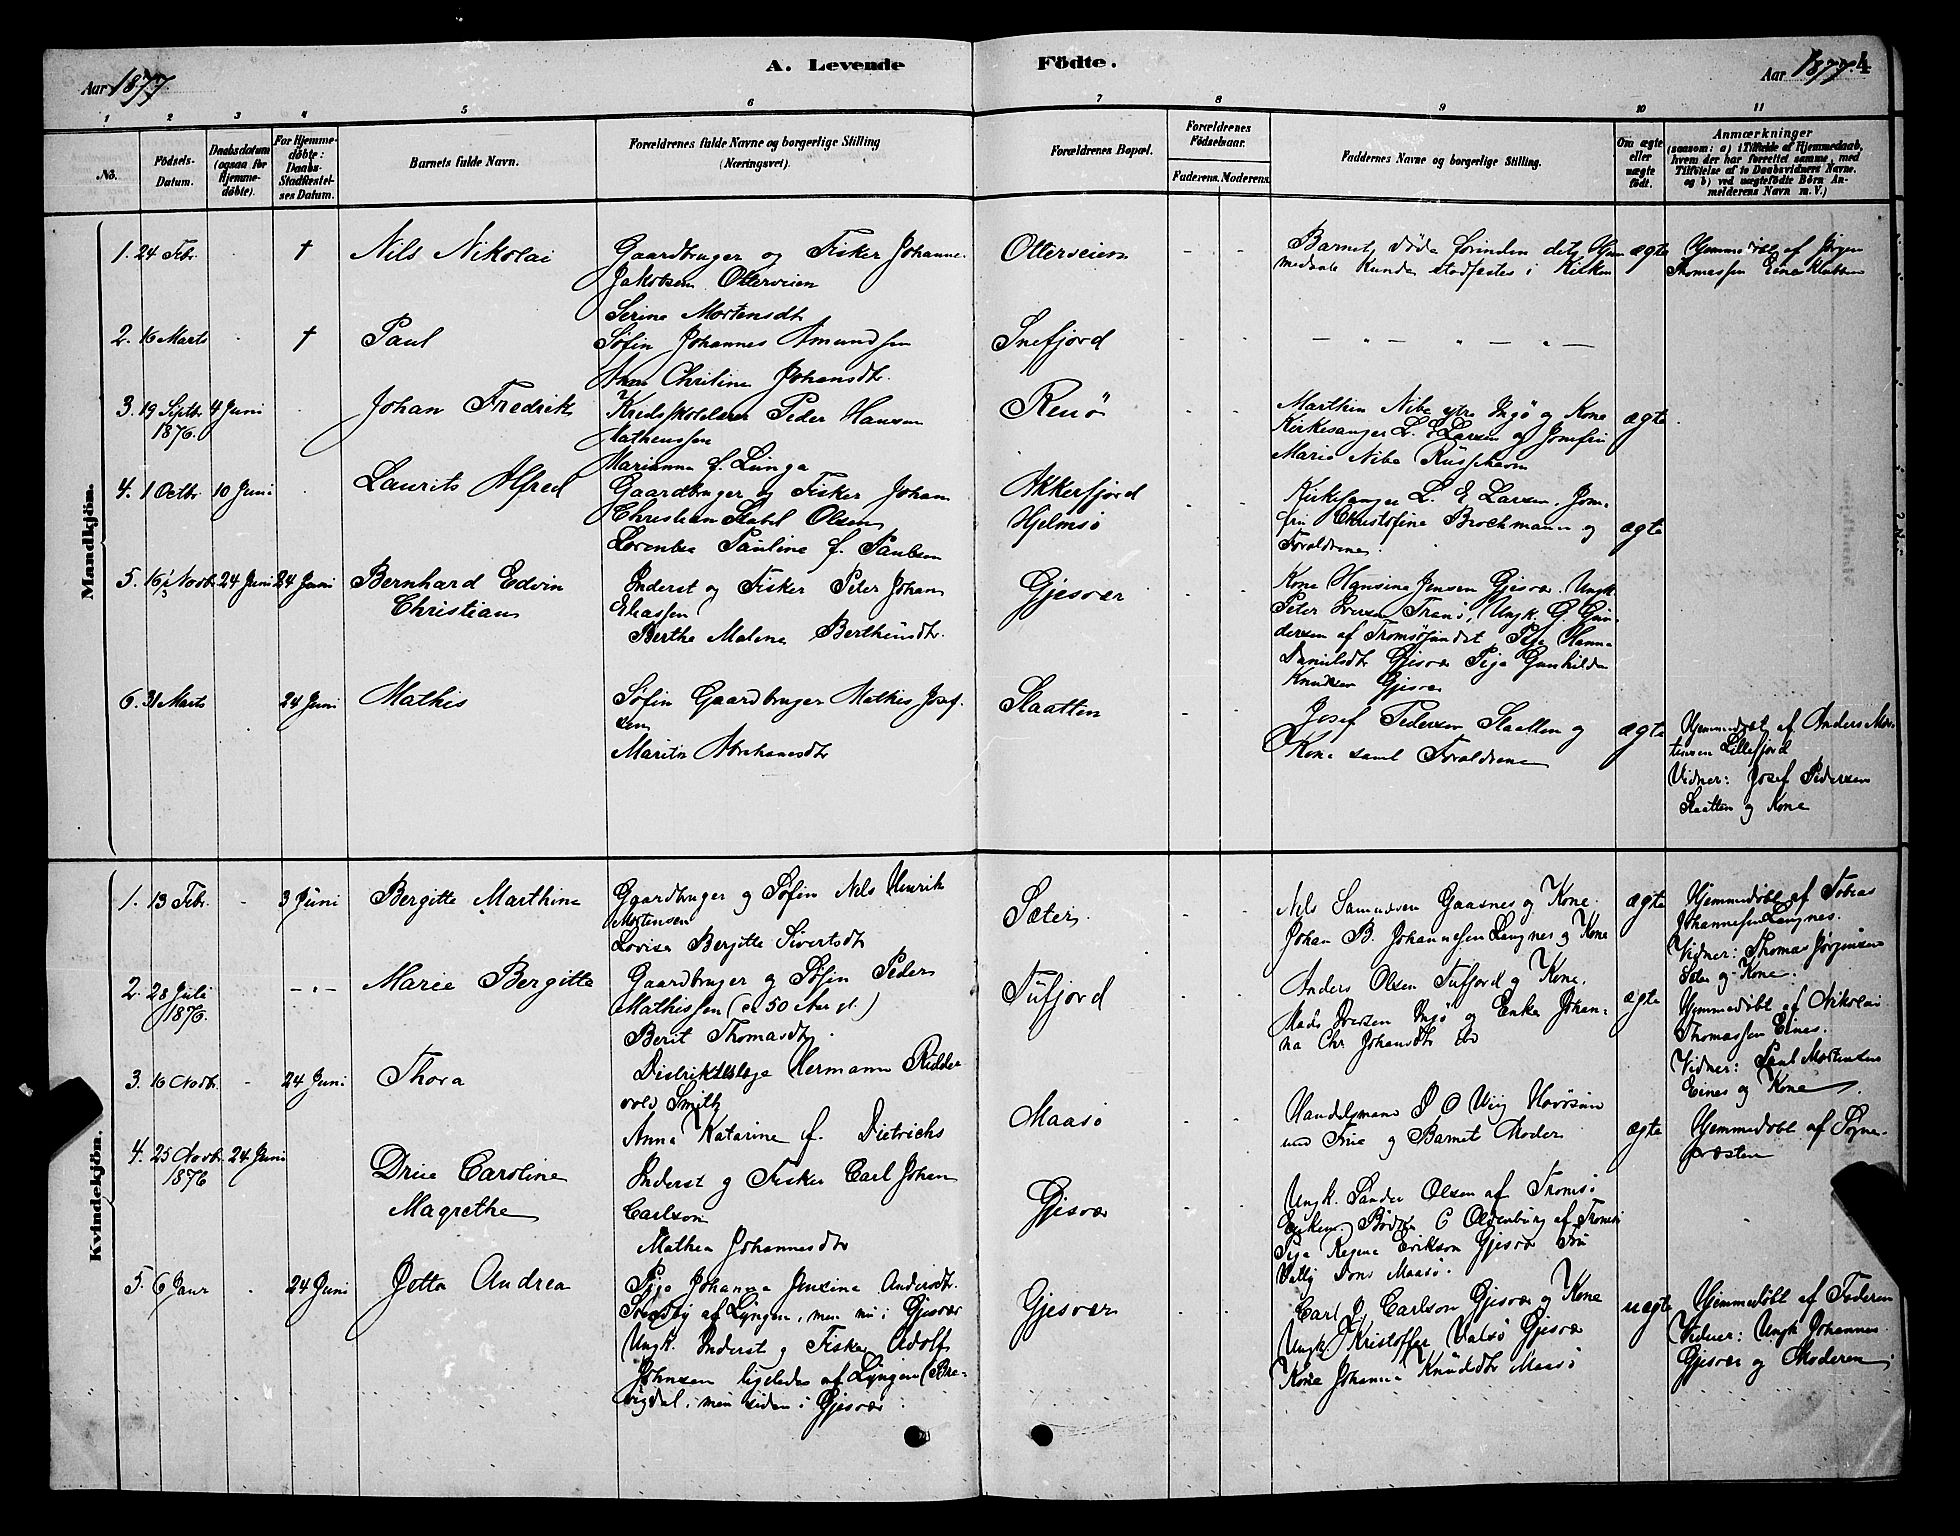 Aar 1877.
A. Levende
Födte.
Aar 1877.
4
1 2 3 4 5 6 7 8 9 10 11
No.
Födsels-
Datum.
Daabsdatum
(ogsaa for
Hjemme-
döbte).
For Hjemme-
döbte:
Daabs-
Stadfæstel-
ses Datum.
Barnets fulde Navn.
Forældrenes fulde Navne og borgerlige Stilling
(Næringsvei).
Forældrenes Bopæl.
Forældrenes
Födselsaar.
Faderens. Moderens.
Faddernes Navne og borgerlige Stilling.
Om ægte
eller
uægte
födt.
Anmærkninger
(saasom: a) i Tilfælde af Hjemmedaab,
hvem der har forrettet samme, med
Tilföielse af to Daabsvidners Navne,
og b) ved uægtefödte Börn An-
melderens Navn m. V.)
Mandkjön.
1. 24 Febr. † Nils Nikolai
Gaardbruger og Fisker Johannes
Jakobsen Otterveien
Serine Mortensdtr
Otterveien
Barnet døde forinden dets Hjem
medaab kunde stadfæstes i Kirken
ægte
Hjemmedöbt af Jörgen
Thomassen
2. 16 Marts † Paul
Søfin Johannes Amundsen
Christine Johansdtr.
Snefjord
3. 19 Septbr. 4 Juni
1876.
Johan Fredrik
Peder Hansen
Mathenssen
Marianna f. Lunga
Renö
Marthin Nibe ytre Ingö og Kone
Kirkesanger L. E Larsen og Jomfru
Marie Nibe
ægte
4. 1 Octbr. 10 Juni
Laurits Alfred
Gaardbruger og Fisker Johan
Christian Olsen
Pauline f. Paulsen
Akkerfjord
Hjelmsö
Kirkesanger L. E Larsen, Jom-
fru Christofine Brochmann og
Forældrene.
ægte
5. 16 Novbr. 24 Juni 24 Juni
Bernhard Edvin
Christian
Inderst og Fisker Peter Johan
Eliassen
Berthe Malene
Gjesvær
Kone Hansine Jensen Gjesvær, Ungk.
Peter Iversen Tranö, Ungk. G. Gun-
dersen af Tromsösundet, Pige Hanna
Danielsdtr Gjesvær Pige Gunhilda
Knudsen Gjesvær
6. 31 Marts 24 Juni Mathis
Søfin Gaardbruger Mathis Josef-
sen
Marita Abrahamsdtr
Slaatten
Josef Pedersen Slaatten og
Kone samt Forældrene
ægte
Hjemmedöbt af Anders Mor-
tensen Lillefjord
Vidner: Josef Pedersen
Slaatten og Kone
Kvindekjön.
1. 13 Febr. - 3 Juni Bergitte Marthine
Gaardbruger og Søfin Nils Henrik
Mortensen
Lovise Bergitte Sivertsdtr
Sæter.
Nils Samuelsen Gaasnes og Kone.
Johan B. Johannesen Langnes og Kone
ægte
Hjemmedöbt af Tobias
Johannesen Langnes.
Vidner: Thomas Jörgensen
og Kone.
2. 28 Juli
1876.
Marie Bergitte
Gaardbruger og Søfin Peder
Mathissen (ca 50 Aar gl.)
Berit Thomasdtr
Tufjord
Anders Olsen Tufjord og Kone.
Mads Iversen Ingö og Enke Johan-
na Chr Johansdtr
ægte
Hjemmedöbt af Nikolai
Thomassen Eines.
Vidner: Paul Mortensen
Eines og Kone
3. 16 Novbr. - 24 Juni Thora
Distriktslæge Hermann Ridder
vold Smith
Anna Katarine f. Dietrichs
Maasö
Handelsmand O Wiig Havösund
med Frue og Barnets Moder
ægte
Hjemmedöbt af Sogne-
præsten
4. 25 Novbr. 24 Juni
1876
Caroline
Magrethe
Inderst og Fisker Carl Johan
Carlson
Mathea Johannesdtr
Gjesvær
Ungk. Sander Olsen af Tromsö
C Oldenburg af Tromsö
Pige Regine Erikson Gjesvær Fru
Maasö.
5. 6 Janr - 24 Juni Jetta Andrea
Pige Johanna Jensine Andersdtr.
af Lyngen, men nu i Gjesvær
Ungk. Inderst og Fisker Adolf
Johnsen ligeledes af Lyngen
men siden i Gjesvær.
Gjesvær
Carl J. Carlson Gjesvær og Kone
Ungk. Kristoffer Valsö Gjesvær
Kone Johanna Knudsdtr Maasö
uægte
Hjemmedöbt af Faderen
Vidner: Ungk Johannes
Gjesvær og Moderen